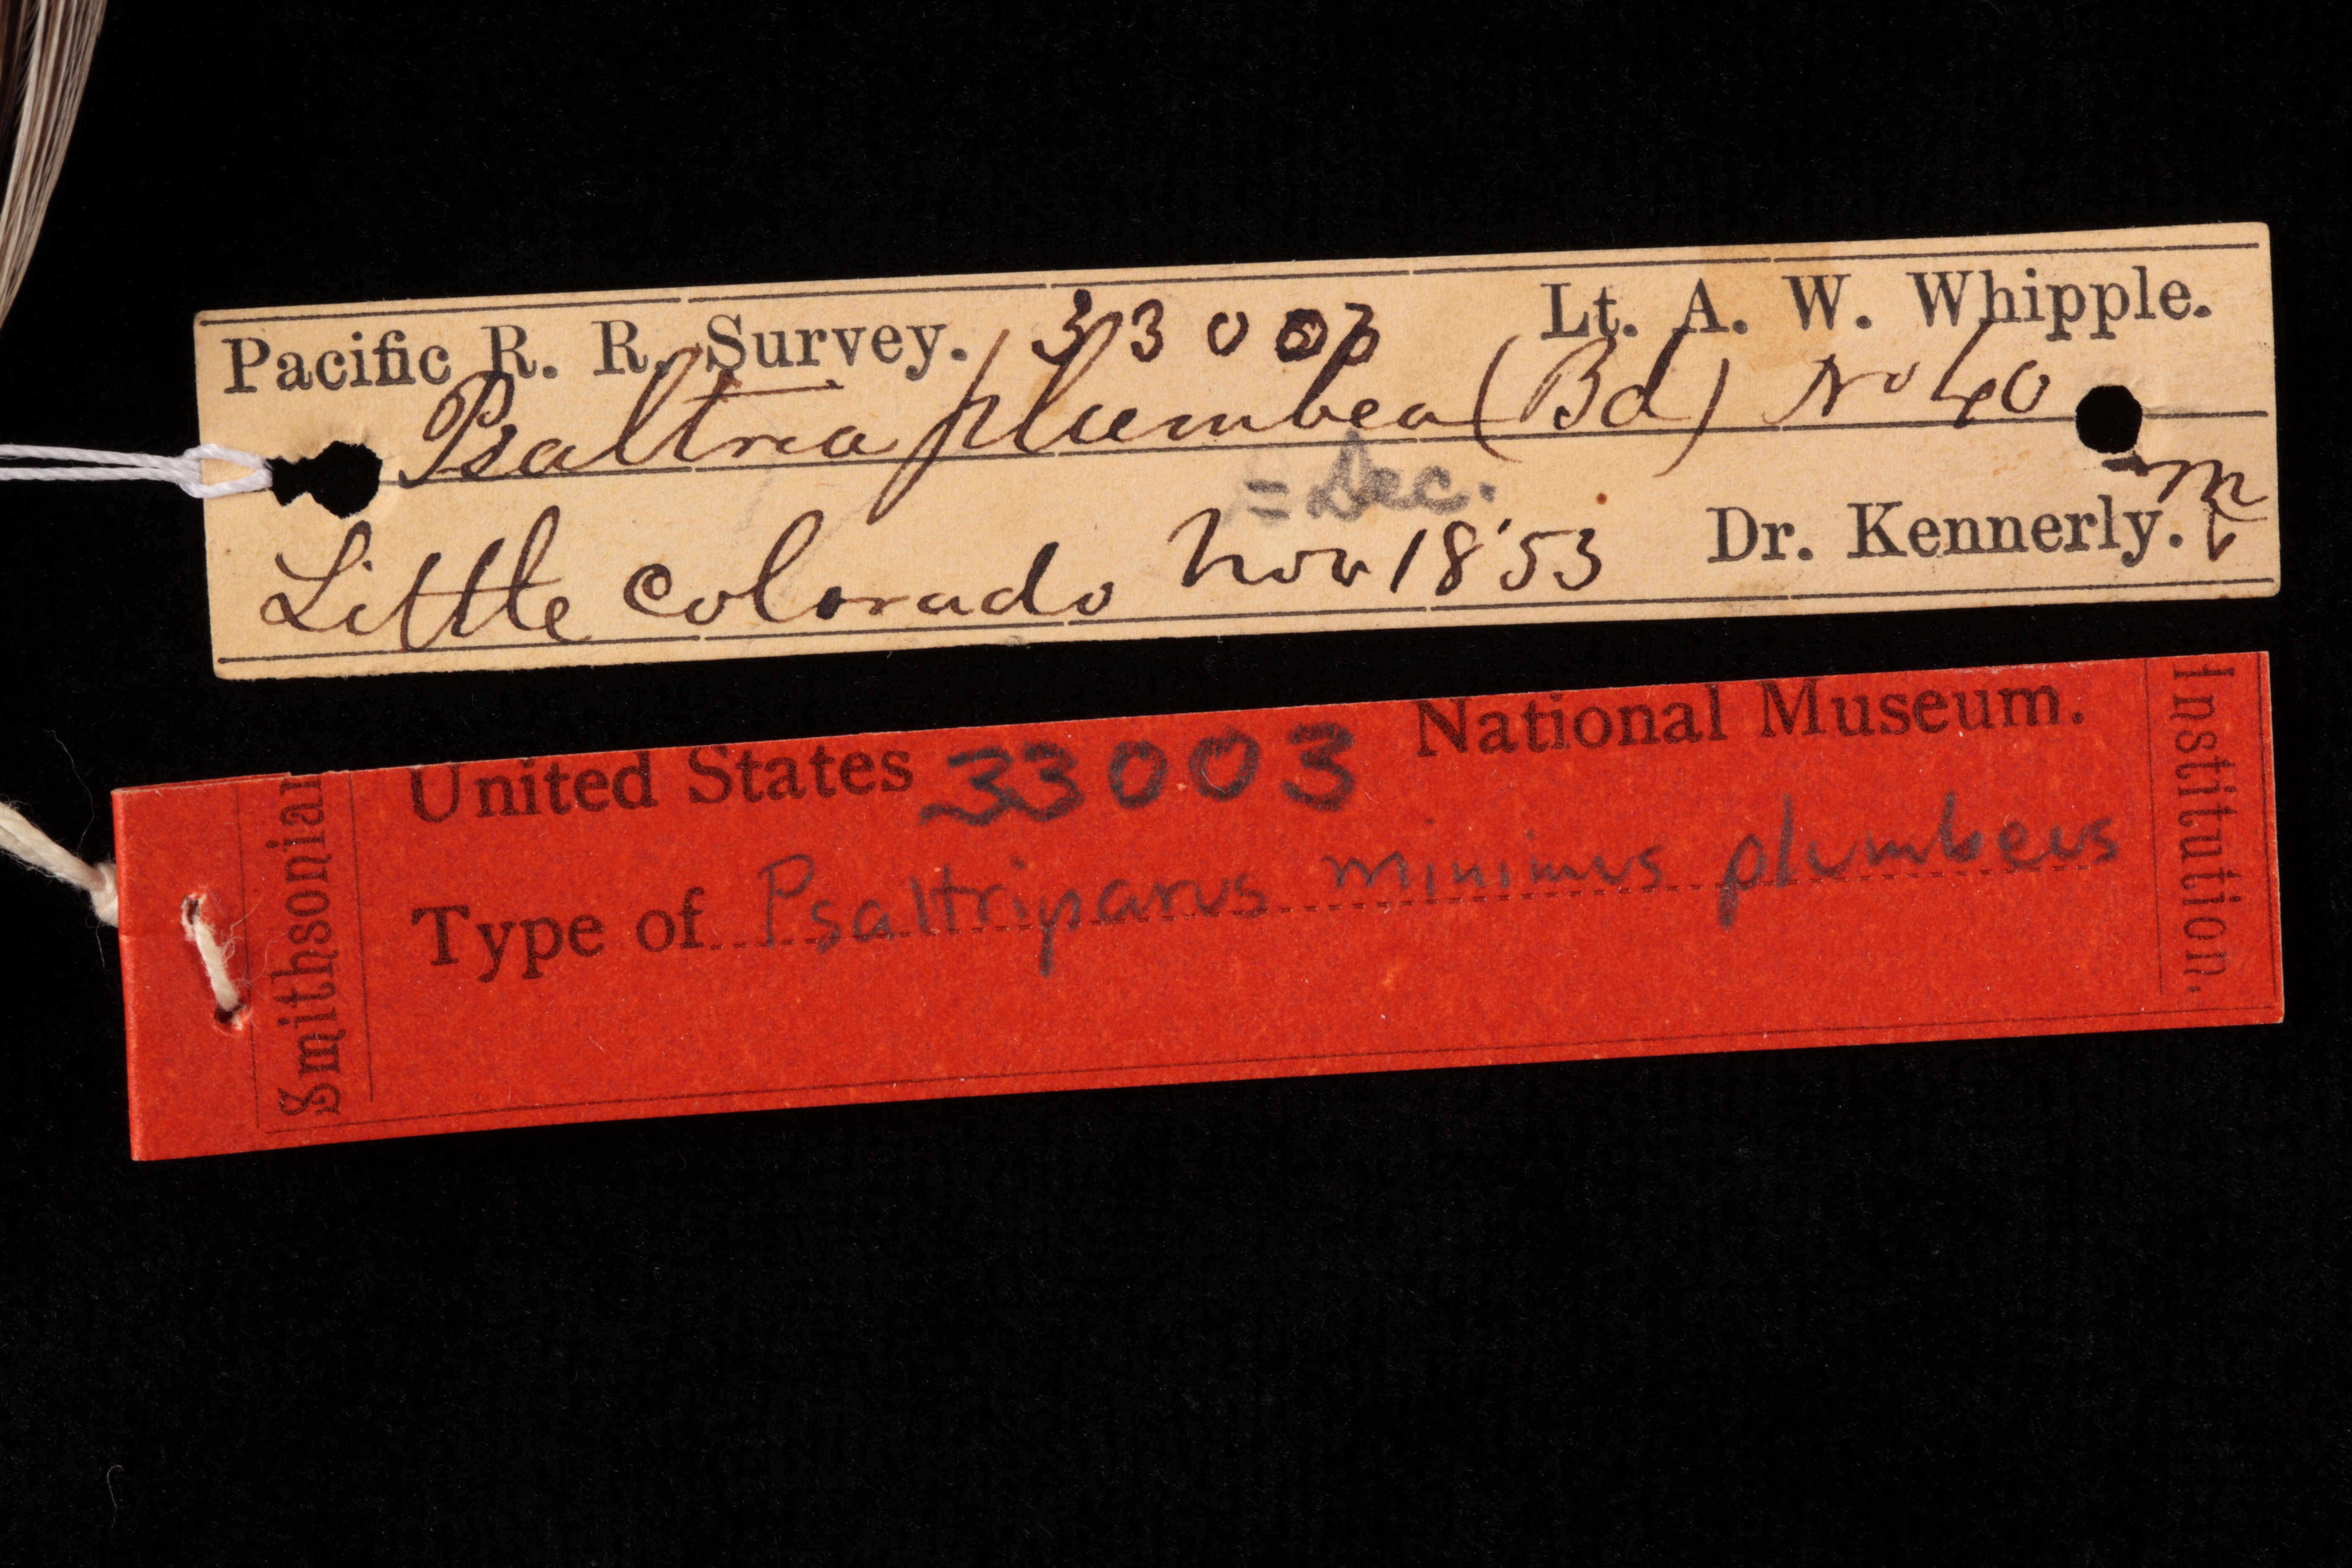 Pacific R. R. Survey. 33003 Lt. A. W. Whipple.
Psaltria plumbea (Bd) No 40
= Dec.
Little Colorado Nov 18 '53 Dr. Kennerly.
Smithsonian
United States 33003 National Museum.
Type of Psaltriparus minimus plumbeus
Institution.